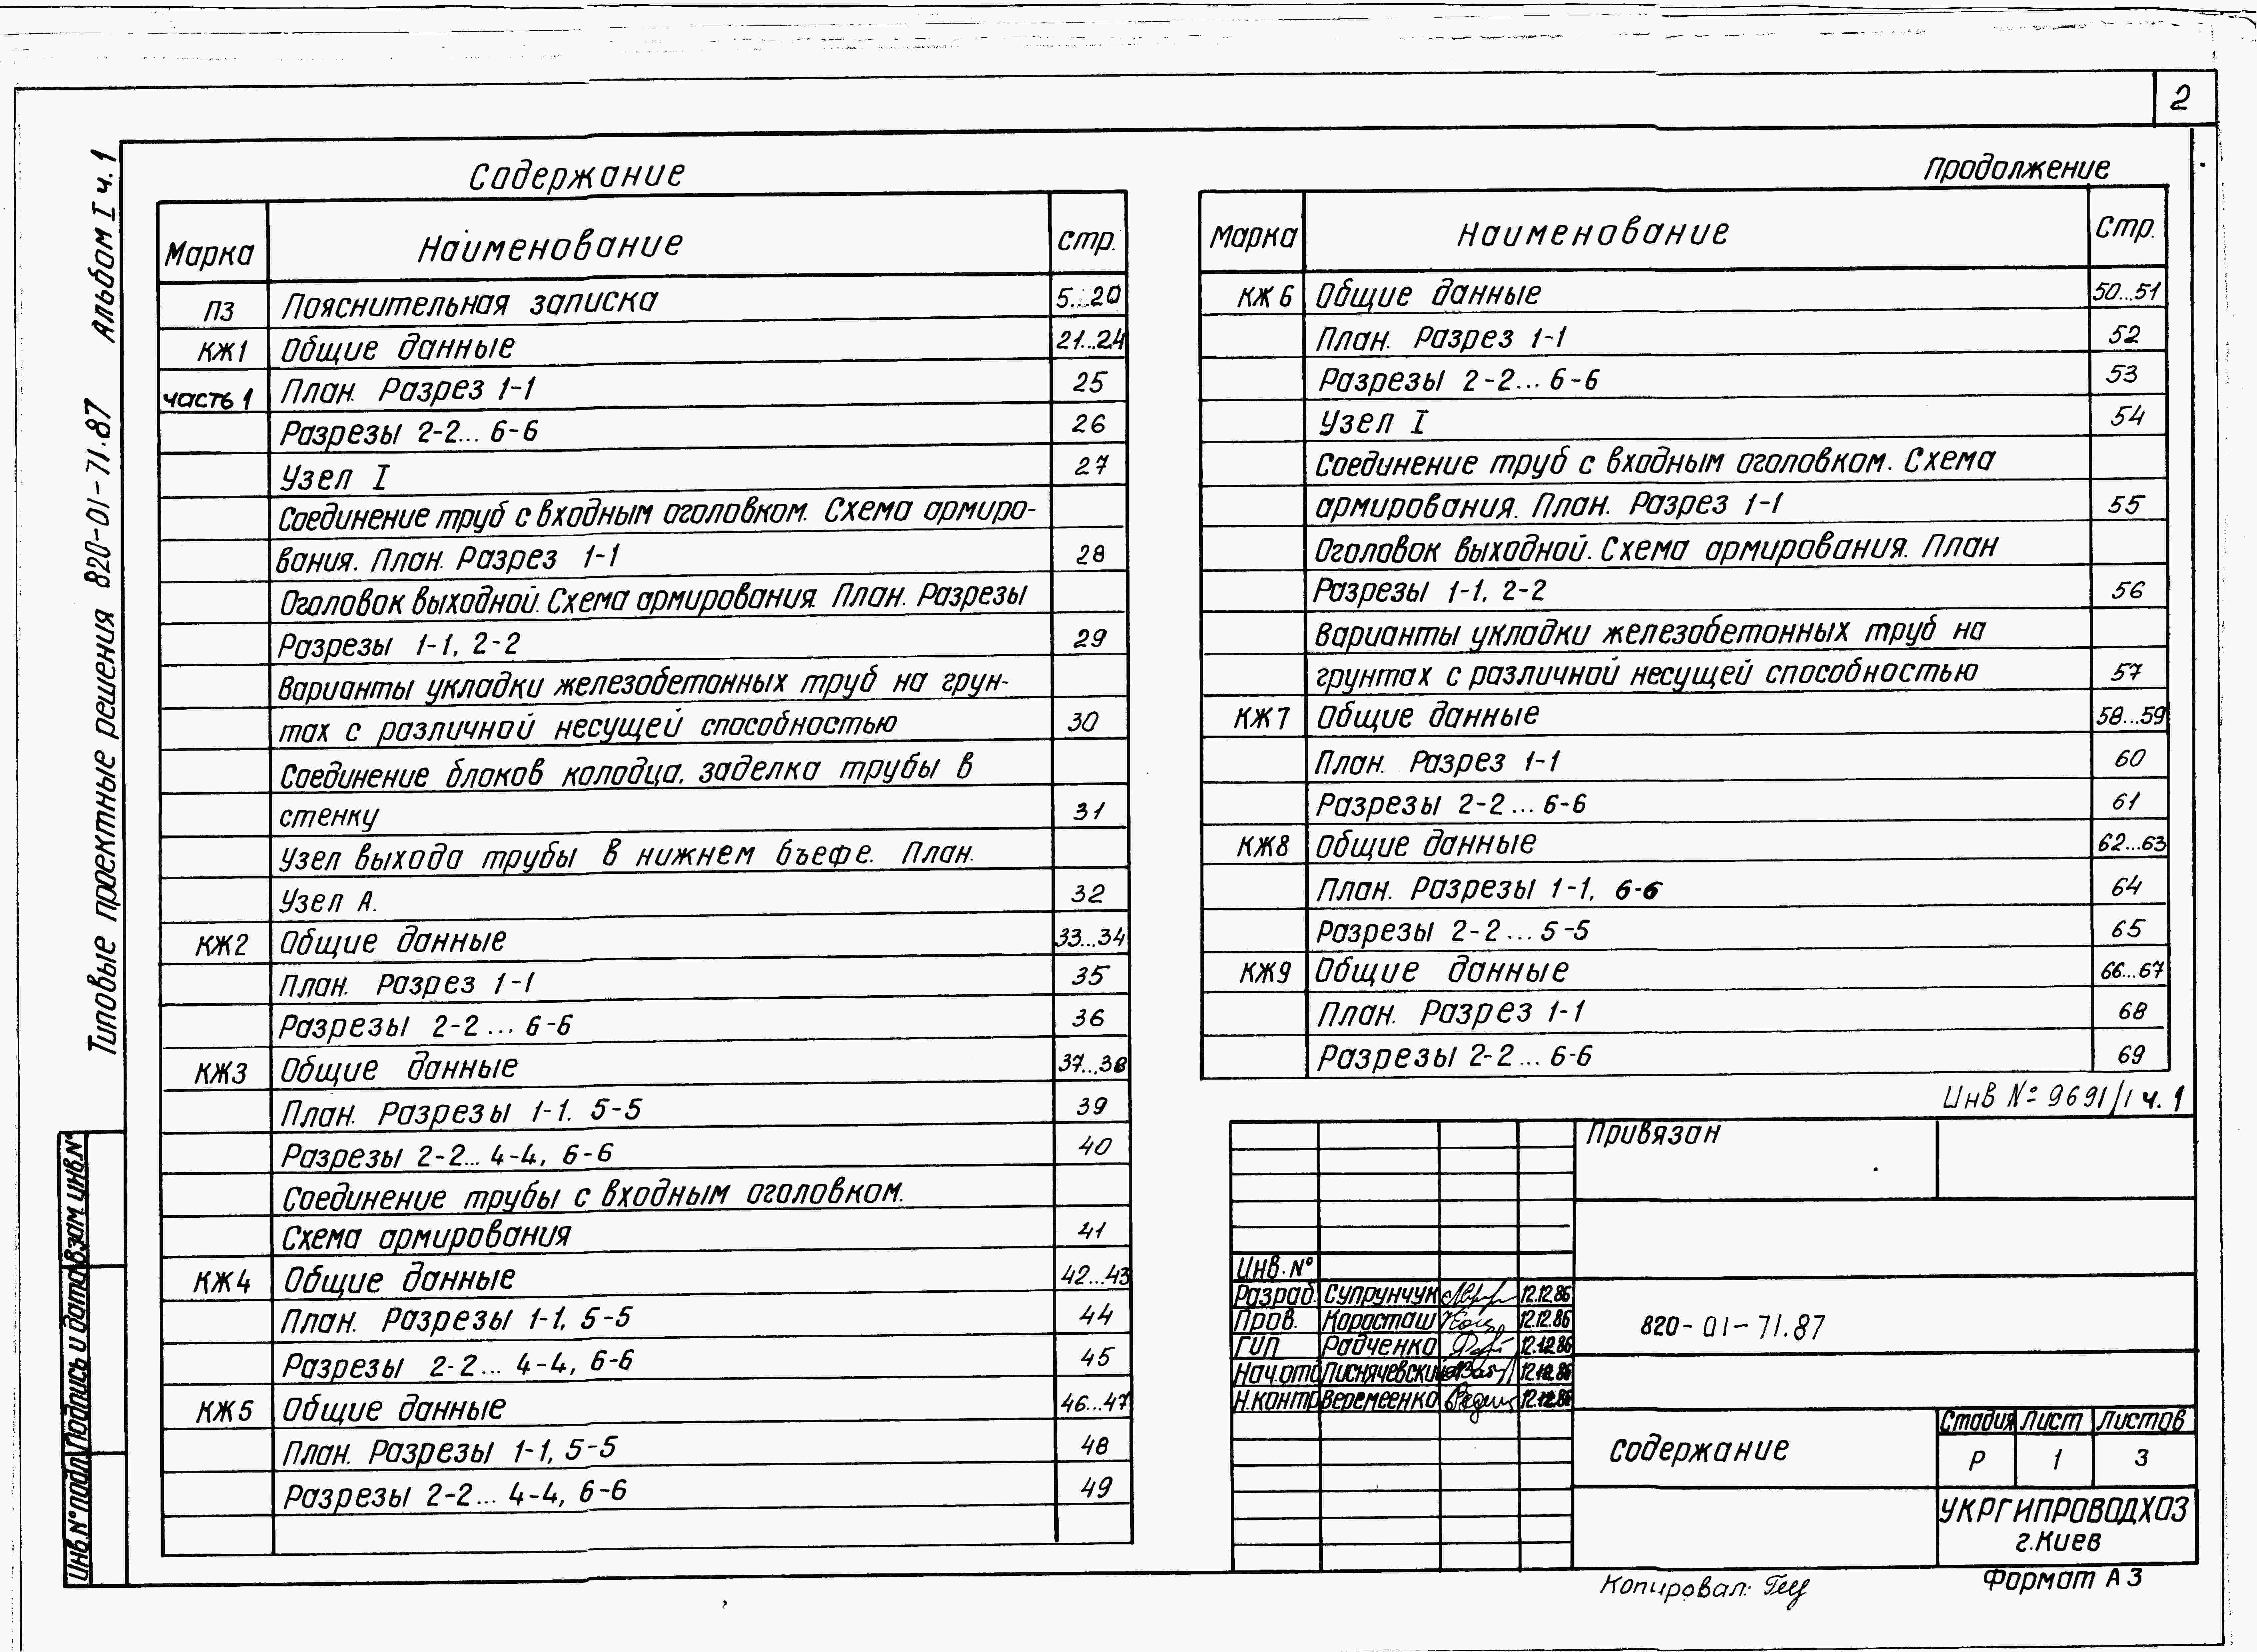 2
Типовые проектные решения 820-01-71.87 Альбом I ч.1
Содержание
Марка Наименование Стр.
ПЗ Пояснительная записка 5...20
КЖ1 Общие данные 21...24
часть 1 План. Разрез 1-1 25
Разрезы 2-2... 6-6 26
Узел I 27
Соединение труб с входным оголовком. Схема армиро-
вания. План. Разрез 1-1 28
Оголовок выходной. Схема армирования. План. Разрезы
Разрезы 1-1, 2-2 29
Варианты укладки железобетонных труб на грун-
тах с различной несущей способностью 30
Соединение блоков колодца, заделка трубы в
стенку 31
Узел выхода трубы в нижнем бъефе. План.
Узел А. 32
КЖ2 Общие данные 33...34
План. Разрез 1-1 35
Разрезы 2-2... 6-6 36
КЖ3 Общие данные 37...38
План. Разрезы 1-1. 5-5 39
Разрезы 2-2... 4-4, 6-6 40
Соединение трубы с входным оголовком.
Схема армирования 41
КЖ4 Общие данные 42...43
План. Разрезы 1-1, 5-5 44
Разрезы 2-2... 4-4, 6-6 45
КЖ5 Общие данные 46...47
План. Разрезы 1-1, 5-5 48
Разрезы 2-2... 4-4, 6-6 49
Продолжение
Марка Наименование Стр.
КЖ6 Общие данные 50...51
План. Разрез 1-1 52
Разрезы 2-2... 6-6 53
Узел I 54
Соединение труб с входным оголовком. Схема
армирования. План. Разрез 1-1 55
Оголовок выходной. Схема армирования. План
Разрезы 1-1, 2-2 56
Варианты укладки железобетонных труб на
грунтах с различной несущей способностью 57
КЖ7 Общие данные 58...59
План. Разрез 1-1 60
Разрезы 2-2... 6-6 61
КЖ8 Общие данные 62...63
План. Разрезы 1-1, 6-6 64
Разрезы 2-2... 5-5 65
КЖ9 Общие данные 66...67
План. Разрез 1-1 68
Разрезы 2-2... 6-6 69
Инв № 9691/1 ч. 1
Привязан
Инв. №
Разраб. Супрунчук 12.12.86
Пров. Коросташ 12.12.86
ГИП Радченко 12.12.86
Нач.отд Лиснячевский 12.12.86
Н.контр Веремеенко 12.12.86
820-01-71.87
содержание
Стадия Лист Листов
Р 1 3
УКРГИПРОВОДХОЗ
г.Киев
Копировал:
Формат А3
Инв.№ подл. Подпись и дата Взам инв.№